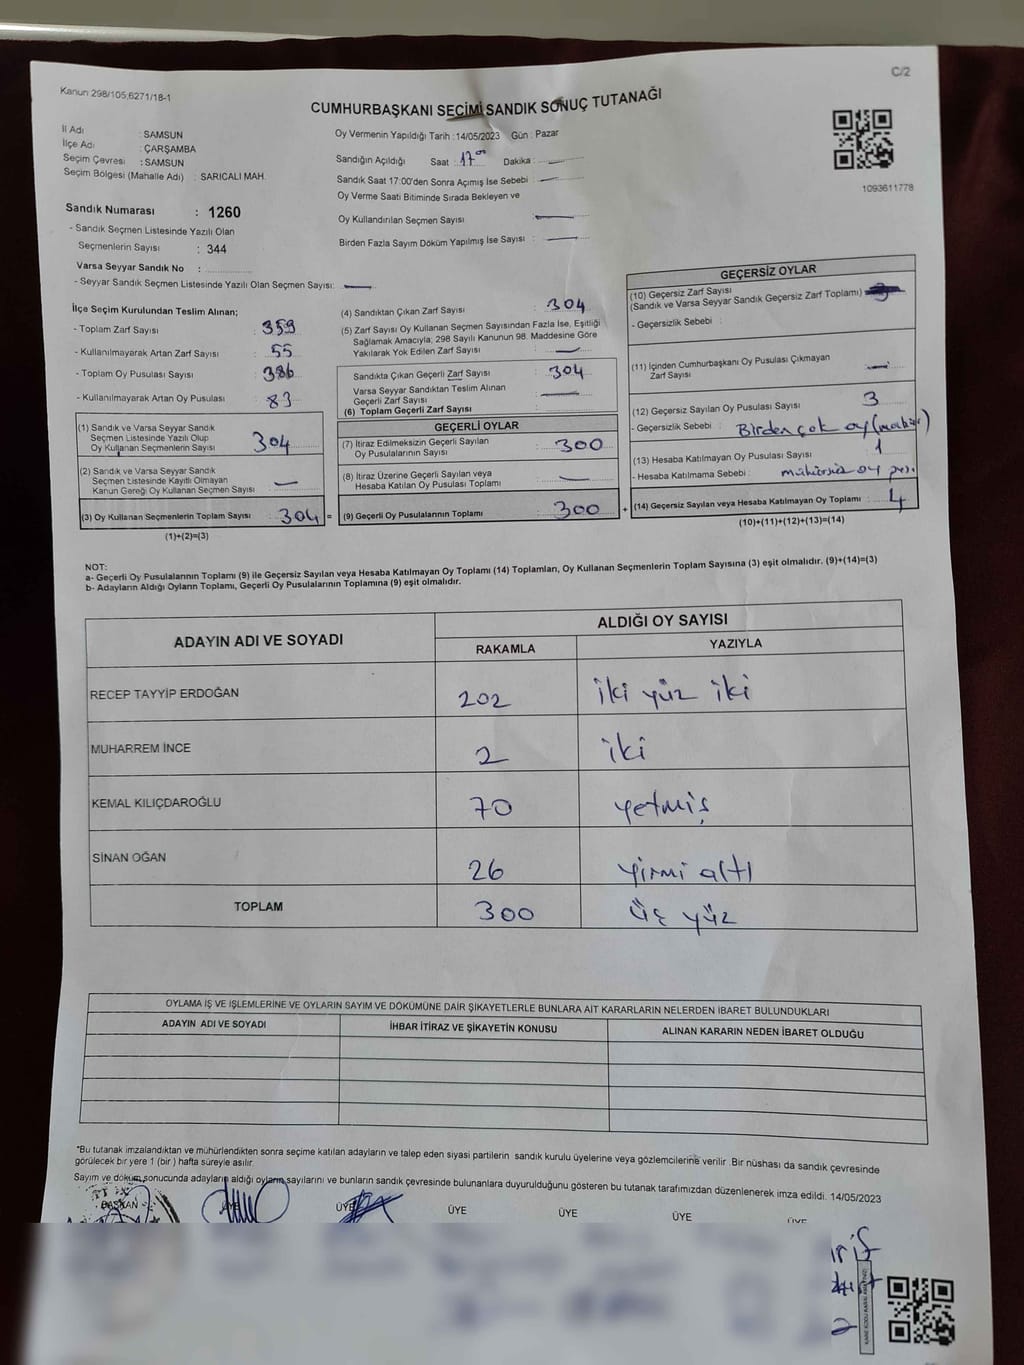 C/2
Kanun 298/105,6271/18-1
CUMHURBAŞKANI SEÇİMİ SANDIK SONUÇ TUTANAĞI
İl Adı : SAMSUN
İlçe Adı : ÇARŞAMBA
Seçim Çevresi : SAMSUN
Seçim Bölgesi (Mahalle Adı) : SARICALI MAH.
Oy Vermenin Yapıldığı Tarih : 14/05/2023 Gün : Pazar
Sandığın Açıldığı Saat : 17 00 Dakika :
Sandık Saat 17:00'den Sonra Açımış İse Sebebi :
Oy Verme Saati Bitiminde Sırada Bekleyen ve
Oy Kullandırılan Seçmen Sayısı :
Birden Fazla Sayım Döküm Yapılmış İse Sayısı :
1093611778
Sandık Numarası : 1260
- Sandık Seçmen Listesinde Yazılı Olan
Seçmenlerin Sayısı : 344
Varsa Seyyar Sandık No :
- Seyyar Sandık Seçmen Listesinde Yazılı Olan Seçmen Sayısı:
İlçe Seçim Kurulundan Teslim Alınan;
- Toplam Zarf Sayısı : 359
- Kullanılmayarak Artan Zarf Sayısı : 55
- Toplam Oy Pusulası Sayısı : 386
- Kullanılmayarak Artan Oy Pusulası : 83
(1) Sandık ve Varsa Seyyar Sandık
Seçmen Listesinde Yazılı Olup
Oy Kullanan Seçmenlerin Sayısı : 304
(2) Sandık ve Varsa Seyyar Sandık
Seçmen Listesinde Kayıtlı Olmayan
Kanun Gereği Oy Kullanan Seçmen Sayısı :
(3) Oy Kullanan Seçmenlerin Toplam Sayısı : 304 =
(1)+(2)=(3)
(4) Sandıktan Çıkan Zarf Sayısı : 304
(5) Zarf Sayısı Oy Kullanan Seçmen Sayısından Fazla İse, Eşitliği
Sağlamak Amacıyla; 298 Sayılı Kanunun 98. Maddesine Göre
Yakılarak Yok Edilen Zarf Sayısı :
Sandıkta Çıkan Geçerli Zarf Sayısı : 304
Varsa Seyyar Sandıktan Teslim Alınan
Geçerli Zarf Sayısı :
(6) Toplam Geçerli Zarf Sayısı :
GEÇERLİ OYLAR
(7) İtiraz Edilmeksizin Geçerli Sayılan
Oy Pusulasının Sayısı : 300
(8) İtiraz Üzerine Geçerli Sayılan veya
Hesaba Katılan Oy Pusulası Toplamı :
(9) Geçerli Oy Pusulalarının Toplamı : 300 +
GEÇERSİZ OYLAR
(10) Geçersiz Zarf Sayısı
(Sandık ve Varsa Seyyar Sandık Geçersiz Zarf Toplamı)
- Geçersizlik Sebebi :
(11) İçinden Cumhurbaşkanı Oy Pusulası Çıkmayan
Zarf Sayısı :
(12) Geçersiz Sayılan Oy Pusulası Sayısı : 3
- Geçersizlik Sebebi : Birden çok oy
(13) Hesaba Katılmayan Oy Pusulası Sayısı : 1
- Hesaba Katılmama Sebebi : mühürsüz oy
(14) Geçersiz Sayılan veya Hesaba Katılmayan Oy Toplamı : 4
(10)+(11)+(12)+(13)=(14)
NOT:
a- Geçerli Oy Pusulalarının Toplamı (9) ile Geçersiz Sayılan veya Hesaba Katılmayan Oy Toplamı (14) Toplamları, Oy Kullanan Seçmenlerin Toplam Sayısına (3) eşit olmalıdır. (9)+(14)=(3)
b- Adayların Aldığı Oyların Toplamı, Geçerli Oy Pusulalarının Toplamına (9) eşit olmalıdır.
ADAYIN ADI VE SOYADI ALDIĞI OY SAYISI
RAKAMLA YAZIYLA
RECEP TAYYİP ERDOĞAN 202 iki yüz iki
MUHARREM İNCE 2 iki
KEMAL KILIÇDAROĞLU 70 yetmiş
SİNAN OĞAN 26 yirmi altı
TOPLAM 300 üç yüz
OYLAMA İŞ VE İŞLEMLERİNE VE OYLARIN SAYIM VE DÖKÜMÜNE DAİR ŞİKAYETLERLE BUNLARA AİT KARARLARIN NELERDEN İBARET BULUNDUKLARI
ADAYIN ADI VE SOYADI İHBAR İTİRAZ VE ŞİKAYETİN KONUSU ALINAN KARARIN NEDEN İBARET OLDUĞU
*Bu tutanak imzalandıktan ve mühürlendikten sonra seçime katılan adayların ve talep eden siyasi partilerin sandık kurulu üyelerine veya gözlemcilerine verilir .Bir nüshası da sandık çevresinde
görülecek bir yere 1 (bir ) hafta süreyle asılır.
Sayım ve döküm sonucunda adayların aldığı oyların sayılarını ve bunların sandık çevresinde bulunanlara duyurulduğunu gösteren bu tutanak tarafımızdan düzenlenerek imza edildi. 14/05/2023
BAŞKAN ÜYE ÜYE ÜYE ÜYE ÜYE ÜYE